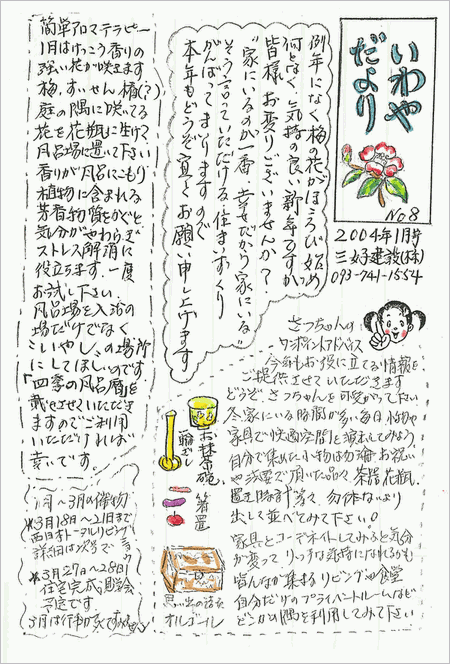 いわや
だより
No8
2004年1月号
三好建設(株)
093-741-1554
例年になく梅の花がほころび始め
何となく気持の良い新年ですが
皆様お変りございませんか?
"家にいるのが一番幸せだから家にいる"
そう言っていただける住まいづくり
がんばってまいりますので
本年もどうぞ宜しくお願い申し上げます
簡単アロマテラピー
1月はけっこう香りの
強い花が咲きます
梅,すいせん,梅(?)
庭の隅に咲いてる
花を花瓶に生けて
風呂場に置いて下さい
香りが風呂にこもり
植物に含まれる
芳香物質をかぐと
気分がやわらぎ
ストレス解消に
役立ちます.一度
お試し下さい
風呂場を入浴の
場だけでなく
"いやし"の場所
にしてほしいのです
「四季の風呂暦」を
載せさせていただき
ますのでご利用
いただければ
幸いです。
さっちゃんの
ワンポイントアドバイス
今年もお役に立てる情報を
ご提供させていただきます
どうぞさっちゃんを可愛がって下さい
冬家にいる時間が多い毎日小物や
家具で快適空間を演出してみよう
自分で集めた小物は勿論お祝い
や法要で頂いた品々茶器花瓶
置き時計等々,勿体ないより
出して並べてみて下さい!
家具とコーデネイトしてみると気分
が変ってリッチな気持になれるかも
皆んなが集まるリビングや食堂
自分だけのプライベートルームなど
どこかの隅を利用してみて下さい
お抹茶碗
箸置
思い出の詰った
オルゴール
1月~3月の催物
*3月18日~21日まで
西日本トータルリビング
詳細は次号で
*3月27日~28日
住宅完成見学会
予定です